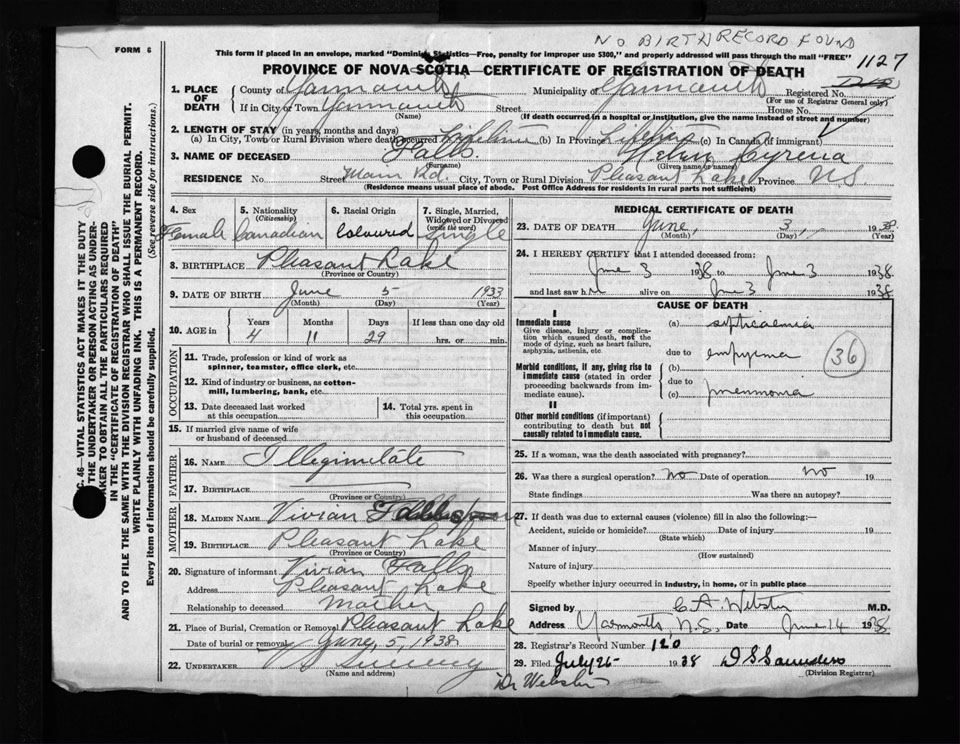 NO BIRTH RECORD FOUND
FORM 6
This form if placed in an envelope, marked "Dominion Statistics—Free, penalty for improper use $300," and properly addressed will pass through the mail "FREE"
1127
PROVINCE OF NOVA SCOTIA—CERTIFICATE OF REGISTRATION OF DEATH
1. PLACE OF DEATH
County of Yarmouth Municipality of Yarmouth Registered No.
(For use of Registrar General only)
If in City or Town Yarmouth Street House No.
(Name) (If death occurred in a hospital or institution, give the name instead of street and number)
2. LENGTH OF STAY (in years, months and days)
(a) In City, Town or Rural Division where death occurred Lifetime (b) In Province Lifetime (c) In Canada (if immigrant)
3. NAME OF DECEASED Falls Cyrena
(Surname) (Given name or names)
RESIDENCE No. Street Main Rd. City, Town or Rural Division Pleasant Lake Province N.S.
(Residence means usual place of abode. Post Office Address for residents in rural parts not sufficient)
4. Sex Female
5. Nationality (Citizenship) Canadian
6. Racial Origin Coloured
7. Single, Married, Widowed or Divorced (write the word) Single
8. BIRTHPLACE Pleasant Lake
(Province or Country)
9. DATE OF BIRTH June 5 1933
(Month) (Day) (Year)
10. AGE in Years Months Days If less than one day old
4 11 29 hrs. or min.
OCCUPATION
11. Trade, profession or kind of work as spinner, teamster, office clerk, etc.
12. Kind of industry or business, as cotton-mill, lumbering, bank, etc.
13. Date deceased last worked at this occupation
14. Total yrs. spent in this occupation
15. If married give name of wife or husband of deceased
FATHER
16. NAME Illegimetate
17. BIRTHPLACE
(Province or Country)
MOTHER
18. MAIDEN NAME Vivian
19. BIRTHPLACE Pleasant Lake
(Province or Country)
20. Signature of informant Vivian Falls
Address Pleasant Lake
Relationship to deceased Mother
21. Place of Burial, Cremation or Removal Pleasant Lake
Date of burial or removal June, 5, 1938
22. UNDERTAKER Sweeny
(Name and address)
MEDICAL CERTIFICATE OF DEATH
23. DATE OF DEATH June, 3, 1938
(Month) (Day) (Year)
24. I HEREBY CERTIFY that I attended deceased from:
June 3 1938 to June 3 1938
and last saw h alive on June 3 1938
CAUSE OF DEATH
I
Immediate cause
Give disease, injury or complication which caused death, not the mode of dying, such as heart failure, asphyxia, asthenia, etc.
(a) septicaemia
due to
Morbid conditions, if any, giving rise to immediate cause (stated in order proceeding backwards from immediate cause).
(b) empyema
due to
(c) pneumonia
36
II
Other morbid conditions (if important) contributing to death but not causally related to immediate cause.
25. If a woman, was the death associated with pregnancy?
26. Was there a surgical operation? No Date of operation no 19
State findings Was there an autopsy?
27. If death was due to external causes (violence) fill in also the following:—
Accident, suicide or homicide? Date of injury 19
(State which)
Manner of injury
(How sustained)
Nature of injury
Specify whether injury occurred in industry, in home, or in public place
Signed by C. A. Webster M.D.
Address Yarmouth, N.S. Date June 14 1938
28. Registrar's Record Number 120
29. Filed July 26— 1938 D S Saunders
(Division Registrar)
Dr Webster
C. 46—VITAL STATISTICS ACT MAKES IT THE DUTY
THE UNDERTAKER OR PERSON ACTING AS UNDER-
TAKER TO OBTAIN ALL THE PARTICULARS REQUIRED
IN THE "CERTIFICATE OF REGISTRATION OF DEATH"
AND TO FILE THE SAME WITH THE DIVISION REGISTRAR WHO SHALL ISSUE THE BURIAL PERMIT.
WRITE PLAINLY WITH UNFADING INK. THIS IS A PERMANENT RECORD.
Every item of information should be carefully supplied. (See reverse side for instructions.)